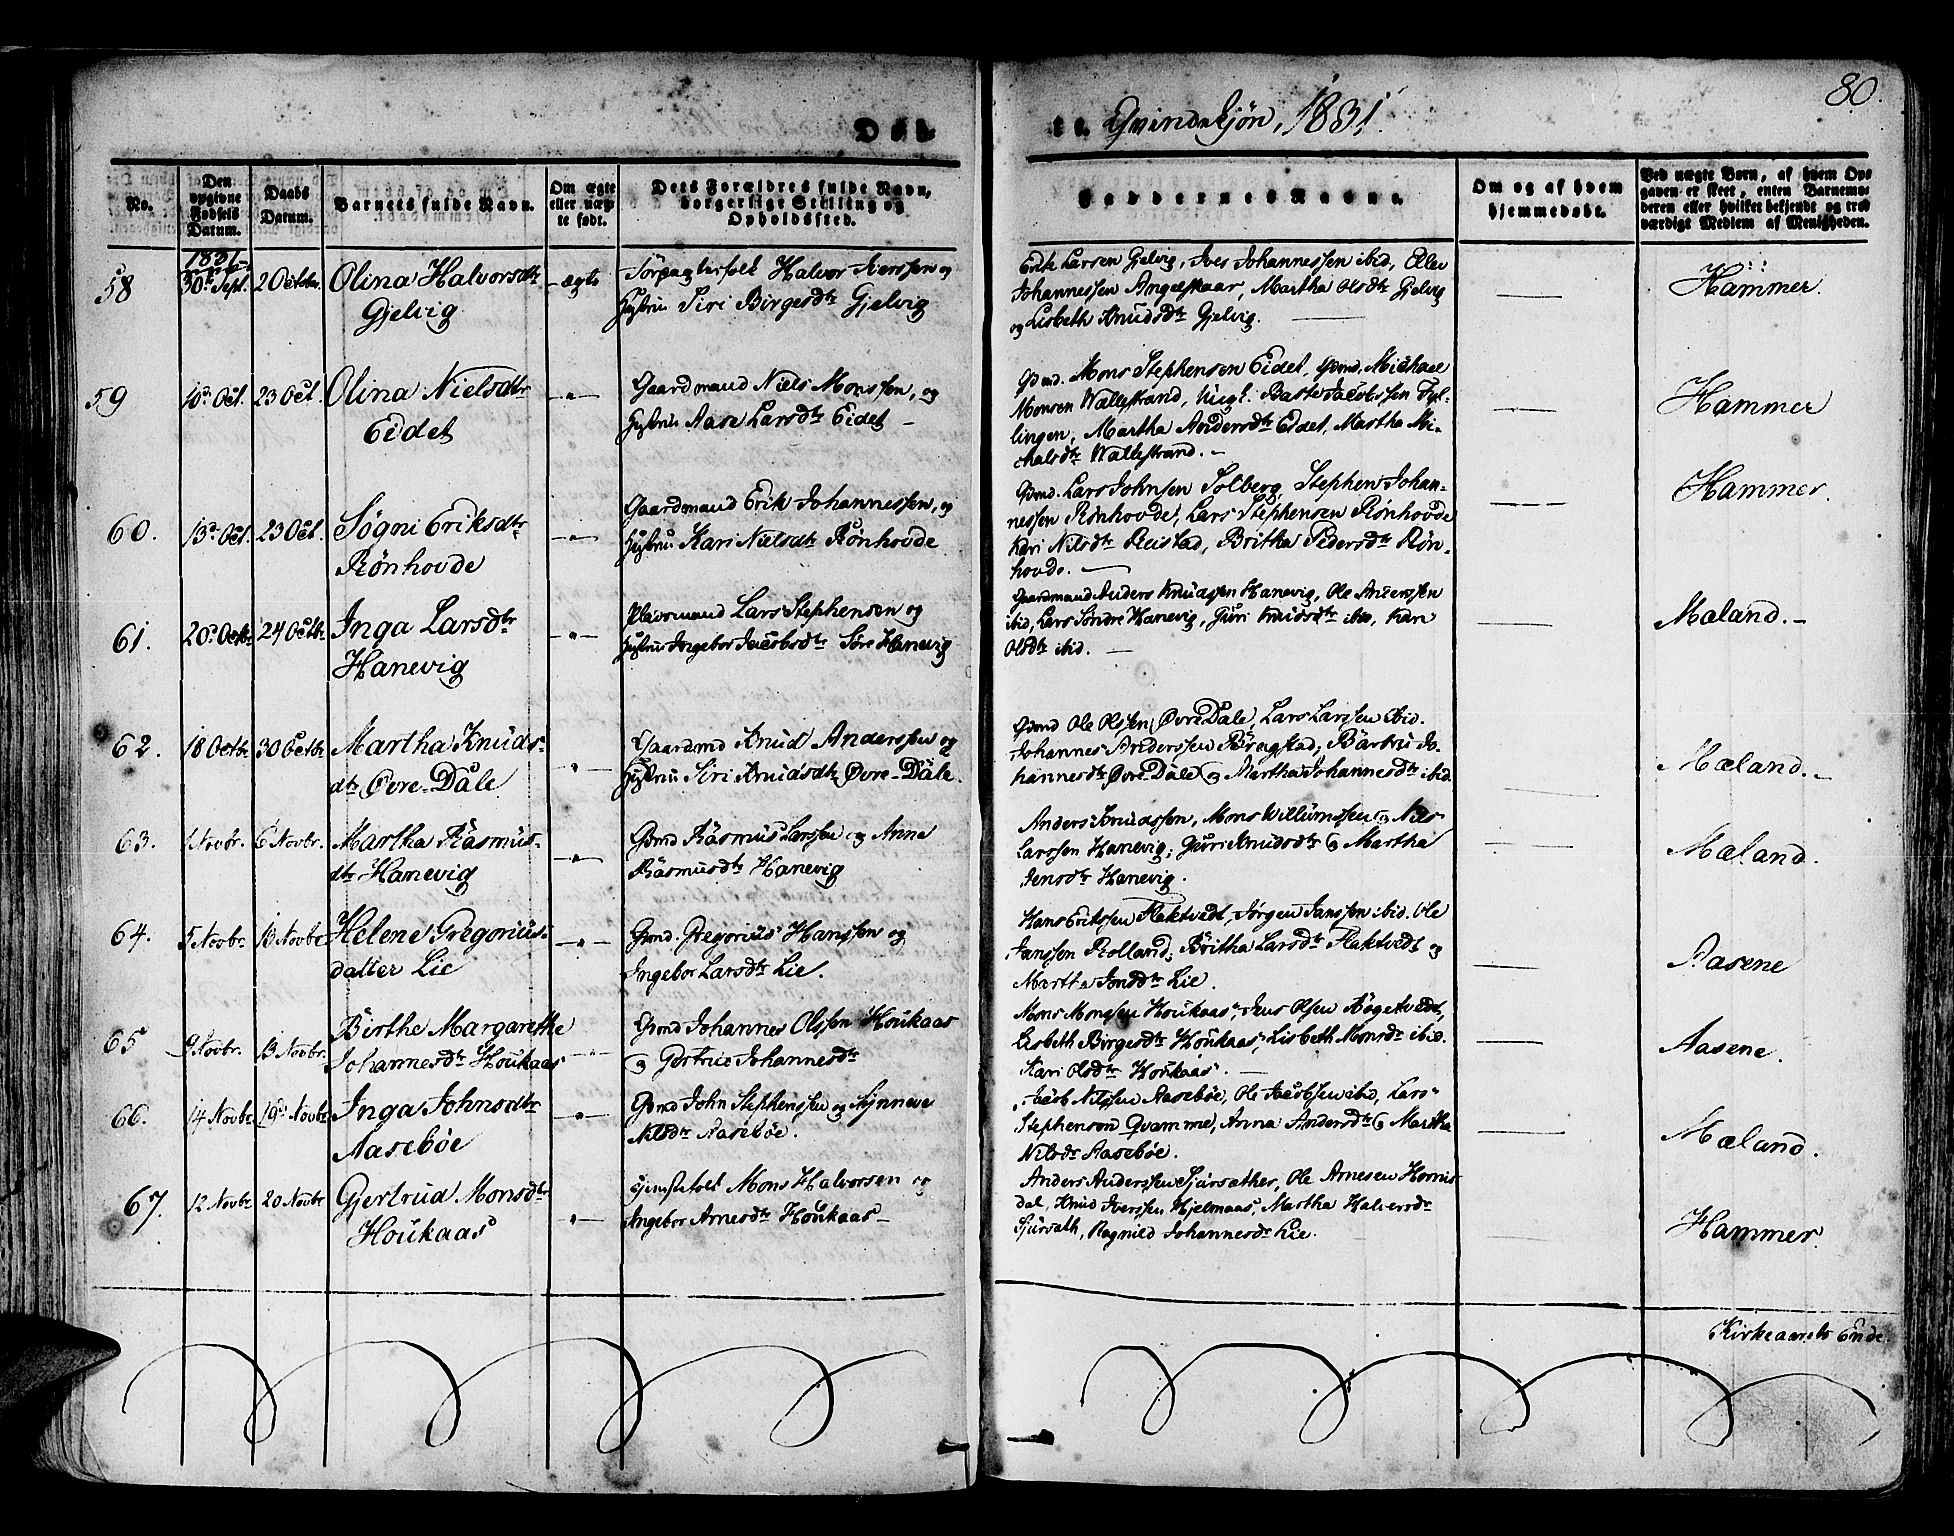 80.
Døb te. Qvindekjøn, 1831.
No.
Den opgivne Fødsels Datum.
Daabs Datum.
Barnets fulde Navn.
Om ægte eller uægte født.
Dets Forældres fulde Navn, borgerlige Stilling og Opholdssted.
Faddernes Navne.
Om og af hvem hjemmedøbt.
Ved uægte Børn, af hvem Opgaven er skeet, enten Barnemoderen eller hvilket bekjendt og troværdigt Medlem af Menigheden.
1831
58 30te Sept. 2 Octobr. Olina Halvorsdtr Gjelvig ægte
Halvor Iverssen og
Hustru Siri Birgersdtr Gjelvig
Erik Larsen Gjelvig, Ives Johannessen ibid,
Johannessen Angelskaar, Martha Olsdtr Gjelvig
og Lisbeth Knudsdtr Gjelvig.
Hammer.
59 10de Oct. 23 Oct. Olina Nielsdtr Eidet -"-
Gaardmand Niels Monssen, og
Hustrue Aase Larsdtr Eidet -
Gdmd. Mons Stephensen Eidet, Gdmd. Michael
Monsen Wallestrand, Ungk. Baste Jacobssen Tyl-
lingen, Martha Andersdtr Eidet, Martha Mi-
chalsdtr Wallestrand. -
Hammer
60. 13de Oct. 23 Oct. Søgni Eriksdtr Rønhovde -"-
Gaardmand Erik Johannessen, og
Hustru Kari Nielsdtr Rønhovde
Gdmd. Lars Johnsen Solberg, Stephen Johan-
nessen Rønhovde, Lars Stephensen Rønhovde
Kari Nilsdtr Reistad, Britha Pedersdtr Røn-
hovde.
Hammer.
61. 20de Octb. 24 Octb. Inga Larsdtr Hanevig -"-
Pladsmand Lars Stephensen og
Hustrue Ingebor Jacobsdtr Søre Hanevig
Gaardmand Anders Knudssen Hanevig, Ole Anderssen
ibid, Lars Søndre Hanevig, Guri Knudsdtr ibid, Kari
Olsdtr ibid.
Mæland. -
62. 18 Octbr. 30 Octbr Martha Knuds-
dtr Øvre-Dale -"-
Gaardmd Knud Anderssen og
Hustru Siri Knudsdtr Øvre-Dale.
Gdmd Ole Olssen Øvre Dale, Lars Larssen ibid.
Johannes Anderssen Bragstad, Jo-
hannesdtr Øvre Dale og Martha Johannesdtr ibid.
Mæland. -
63. 1 Novbr. 6 Novbr. Martha Rasmus-
dtr Hanevig -"-
Gdmd Rasmus Larssen og Anna
Rasmusdtr Hanevig
Anders Knudssen, Mons Willumssen og Nils
Larssen Hanevig; Guri Knudsdtr og Martha
Jensdtr Hanevig.
Mæland.
64. 5 Novbr. 13 Novbr Helene Gregorius-
datter Lie -"-
Gdmd. Gregorius Hanssen og
Ingebor Larsdtr Lie.
Hans Erikssen Flaktvedt, Jørgen Janssen ibid. Ole
Janssen Rolland; Britha Larsdtr Flaktvedt og
Martha Jonsdtr Lie.
Aasene
65 9 Novbr. 13 Novbr. Birthe Margarethe
Johannesdtr Houkaas -"-
Gdmd Johannes Olssen Houkaas
og Gertrue Johannesdtr
Mons Monssen Houkaas, Jens Olsen Bøgetvedt,
Lisbeth Birgesdtr Houkaas, Lisbeth Monsdtr ibid.
Kari Olsdtr Houkaas.
Aasene.
66. 14 Novbr 19de Novbr Inga Johnsdtr
Aasebøe -"-
Gdmd John Stephenssen og Synneve
Nilsdtr Aasebøe.
Jacob Nilssen Aasebøe, Ole Jacobsen ibid, Lars
Stephensen Qvamme, Anna Andersdtr og Martha
Nilsdr Aasebøe.
Mæland.
67. 12 Novbr 20 Novbr Gjertrud Monsdtr
Houkaas -"-
Mons Halvorsen og
Ingebor Arnesdtr Houkaas -
Anders Anderssen Sjursæther, Ole Arnesen
dal, Knud Iverssen Hjelmaas, Martha Halversdr
Ragnild Johannesdr Lie.
Hammer.
Kirkeaarets Ende.